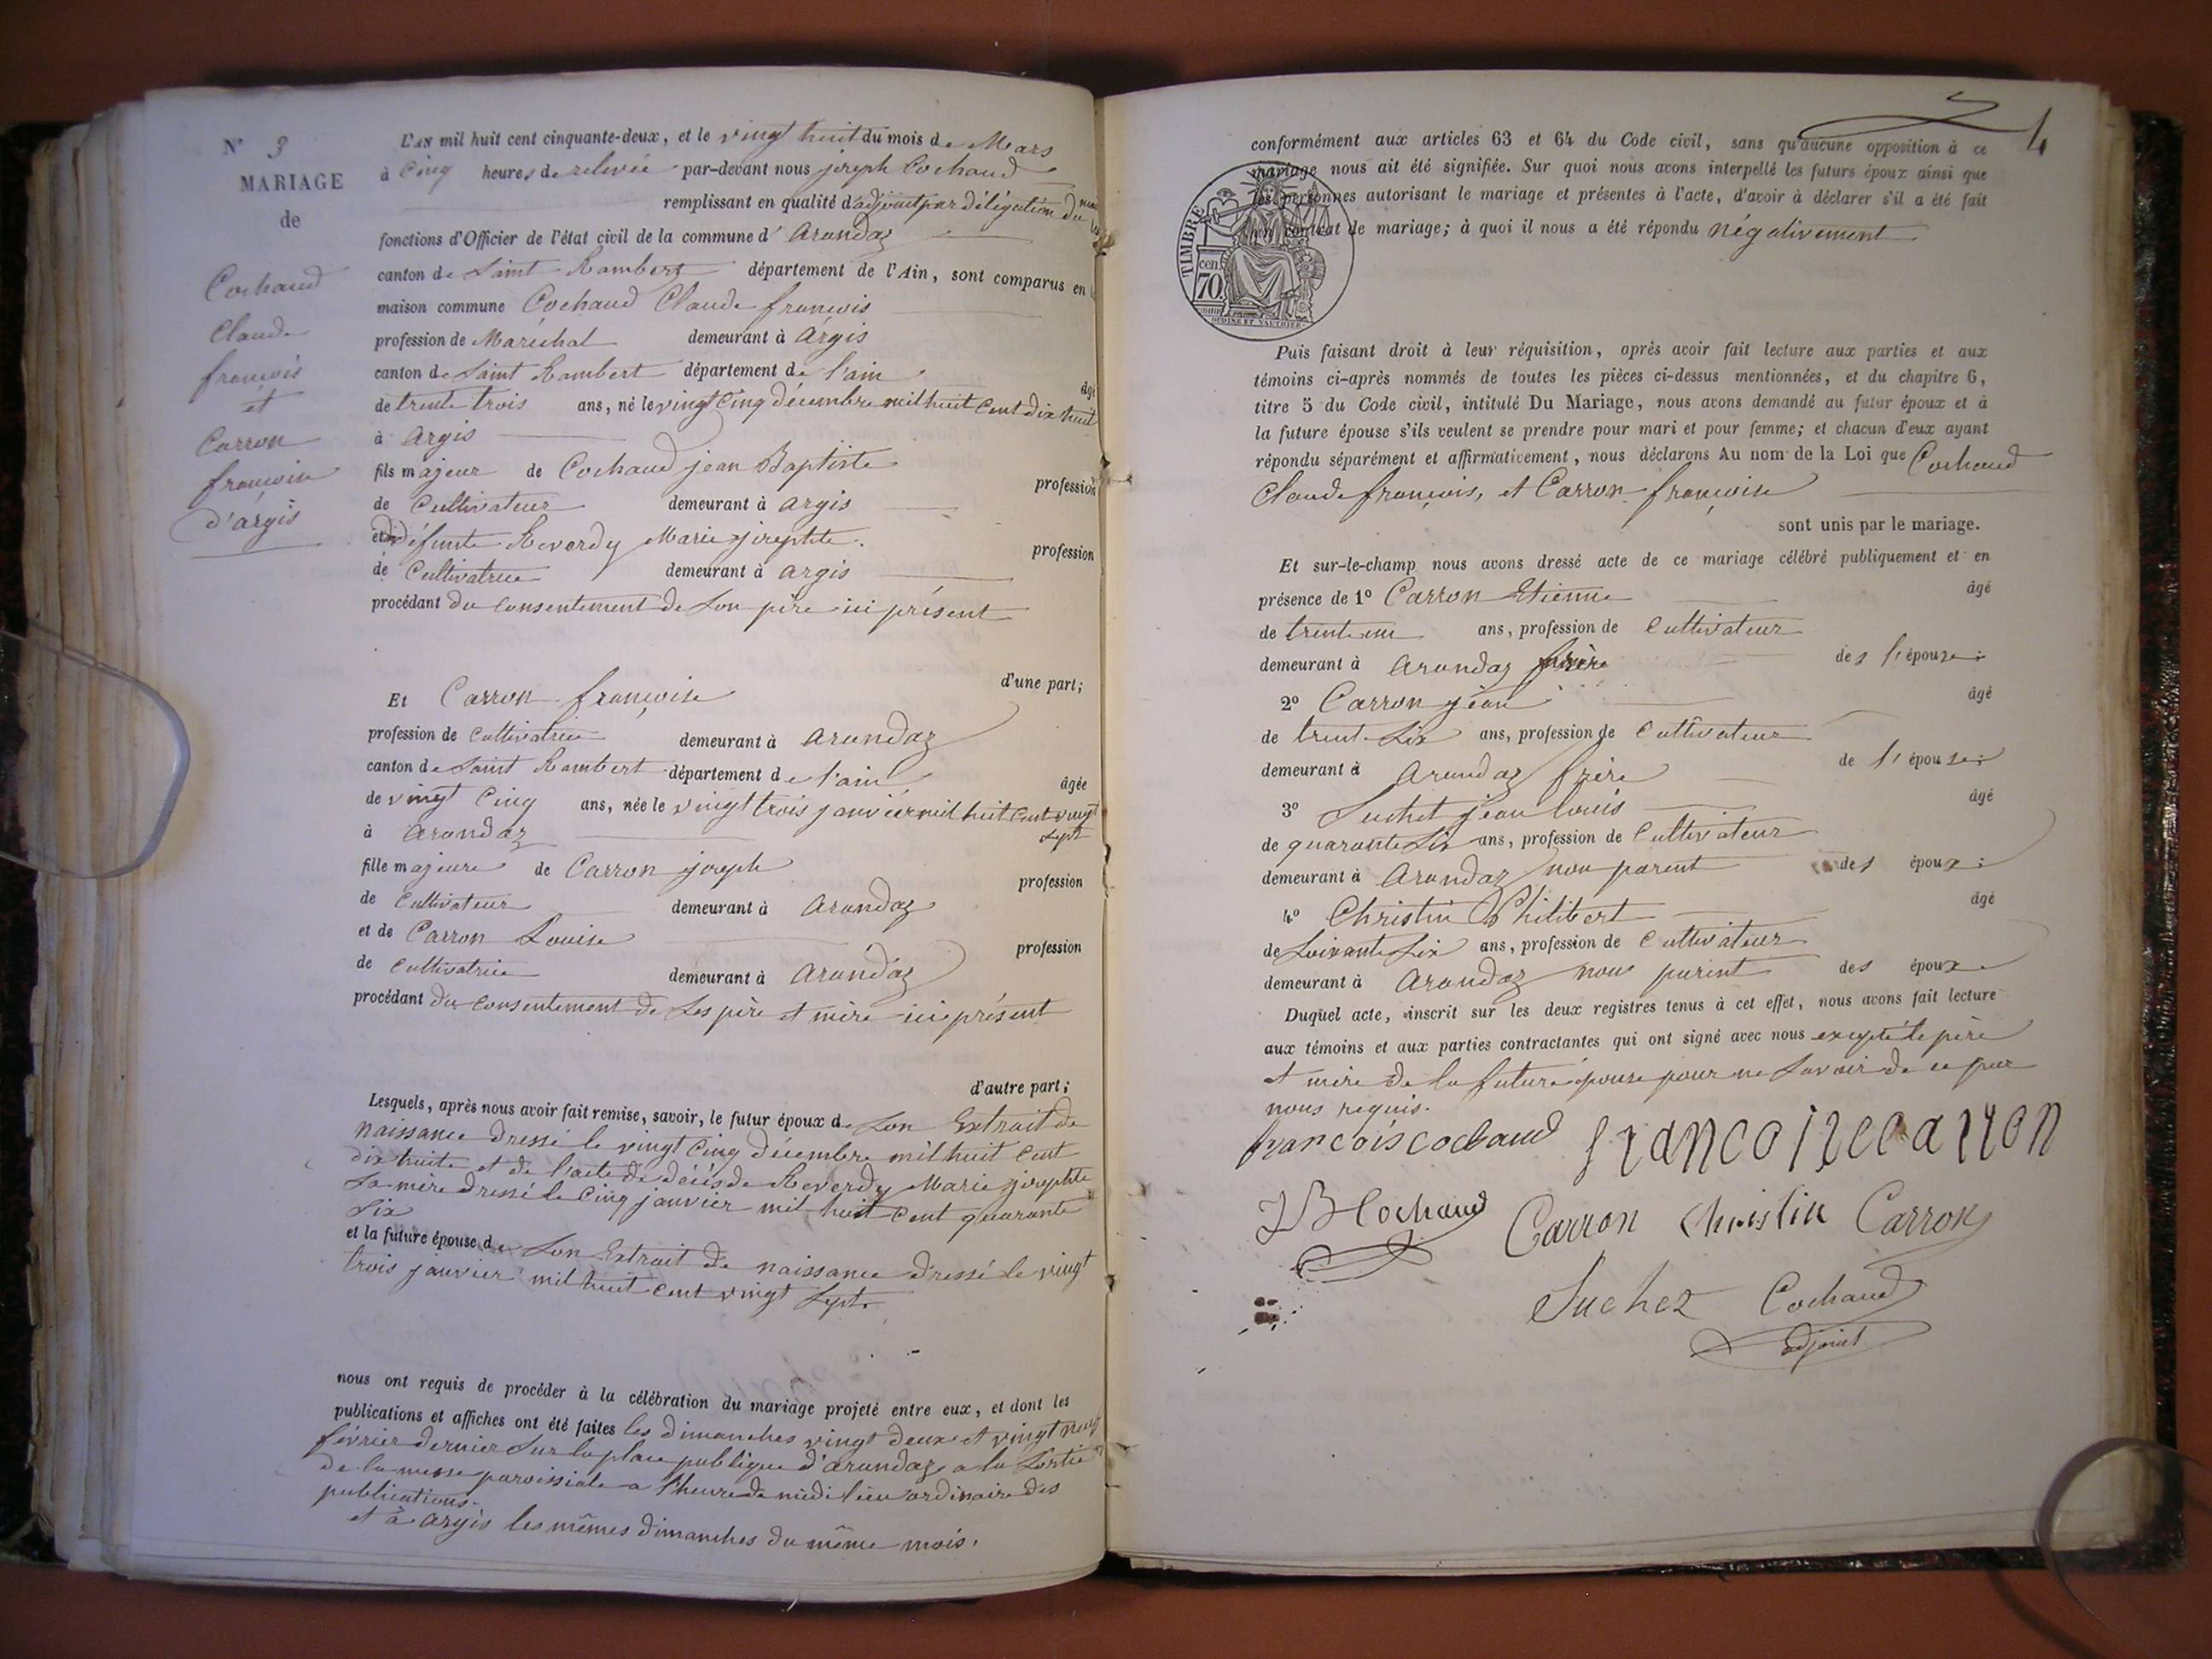 N° 3
MARIAGE
de
Cochaud
Claude
françois
et
Carron
françoise
d'argis
L'AN mil huit cent cinquante-deux, et le vingt huit du mois de Mars
à Cinq heures de relevée par-devant nous joseph Cochaud
remplissant en qualité d'adjoint par délégation du
fonctions d'Officier de l'état civil de la commune d' arandaz
canton de Saint Rambert département de l'Ain, sont comparus en
maison commune Cochaud Claude françois
profession de Maréchal demeurant à argis
canton de Saint Rambert département de l'ain
âgé
de trente trois ans, né le vingt Cinq décembre mil huit Cent dix huit
à argis
fils majeur de Cochaud jean Baptiste
profession
de Cultivateur demeurant à argis
et de défunte Reverdy Marie josephte.
profession
de Cultivatrice demeurant à argis
procédant du consentement de Son père ici présent
d'une part;
Et Carron françoise
profession de Cultivatrice demeurant à arandaz
canton de Saint Rambert département de l'ain
âgée
de vingt Cinq ans, née le vingt trois janvier mil huit Cent vingt
Sept
à arandaz
fille majeure de Carron joseph
profession
de Cultivateur demeurant à arandaz
et de Carron Louise
profession
de Cultivatrice demeurant à arandaz
procédant du consentement de Ses père et mère ici présent
d'autre part;
Lesquels, après nous avoir fait remise, savoir, le futur époux de Son Extrait de
naissance dressé le vingt Cinq décembre mil huit Cent
dix huite et de l'acte de décès de Reverdy Marie josephte
Sa mère dressé le Cinq janvier mil huit Cent quarante
Six
et la future épouse de Son Extrait de naissance dressé le vingt
trois janvier mil huit Cent vingt Sept.
nous ont requis de procéder à la célébration du mariage projeté entre eux, et dont les
publications et affiches ont été faites les dimanches vingt deux et vingt neuf
février dernier Sur la place publique d'arandaz a la Sortie
de la messe paroissiale a l'heure de midi lieu ordinaire des
publications.
et à argis les mêmes dimanches du même mois.
4
conformément aux articles 63 et 64 du Code civil, sans qu'aucune opposition à ce
mariage nous ait été signifiée. Sur quoi nous avons interpellé les futurs époux ainsi que
les personnes autorisant le mariage et présentes à l'acte, d'avoir à déclarer s'il a été fait
un contrat de mariage; à quoi il nous a été répondu négativement
TIMBRE
70 cen
OUDINE ET VAUTHIER
Puis faisant droit à leur réquisition, après avoir fait lecture aux parties et aux
témoins ci-après nommés de toutes les pièces ci-dessus mentionnées, et du chapitre 6,
titre 5 du Code civil, intitulé Du Mariage, nous avons demandé au futur époux et à
la future épouse s'ils veulent se prendre pour mari et pour femme; et chacun d'eux ayant
répondu séparément et affirmativement, nous déclarons Au nom de la Loi que Cochaud
Claude françois, et Carron françoise
sont unis par le mariage.
Et sur-le-champ nous avons dressé acte de ce mariage célébré publiquement et en
présence de 1° Carron Etienne âgé
de trente un ans, profession de Cultivateur
demeurant à arandaz frère des l'épouse;
2° Carron jean âgé
de trente Six ans, profession de Cultivateur
demeurant à arandaz frère de l'épouse;
3° Suchet jean louis âgé
de quarante Six ans, profession de Cultivateur
demeurant à arandaz non parent des époux;
4° Christin Philibert âgé
de Soixante Six ans, profession de Cultivateur
demeurant à arandaz non parent des époux
Duquel acte, inscrit sur les deux registres tenus à cet effet, nous avons fait lecture
aux témoins et aux parties contractantes qui ont signé avec nous excepté le père
et mère de la future épouse pour ne Savoir de ce par
nous requis.
francois cochaud francoise carron
JB Cochaud Carron Christin Carron
Suchez Cochaud
adjoint